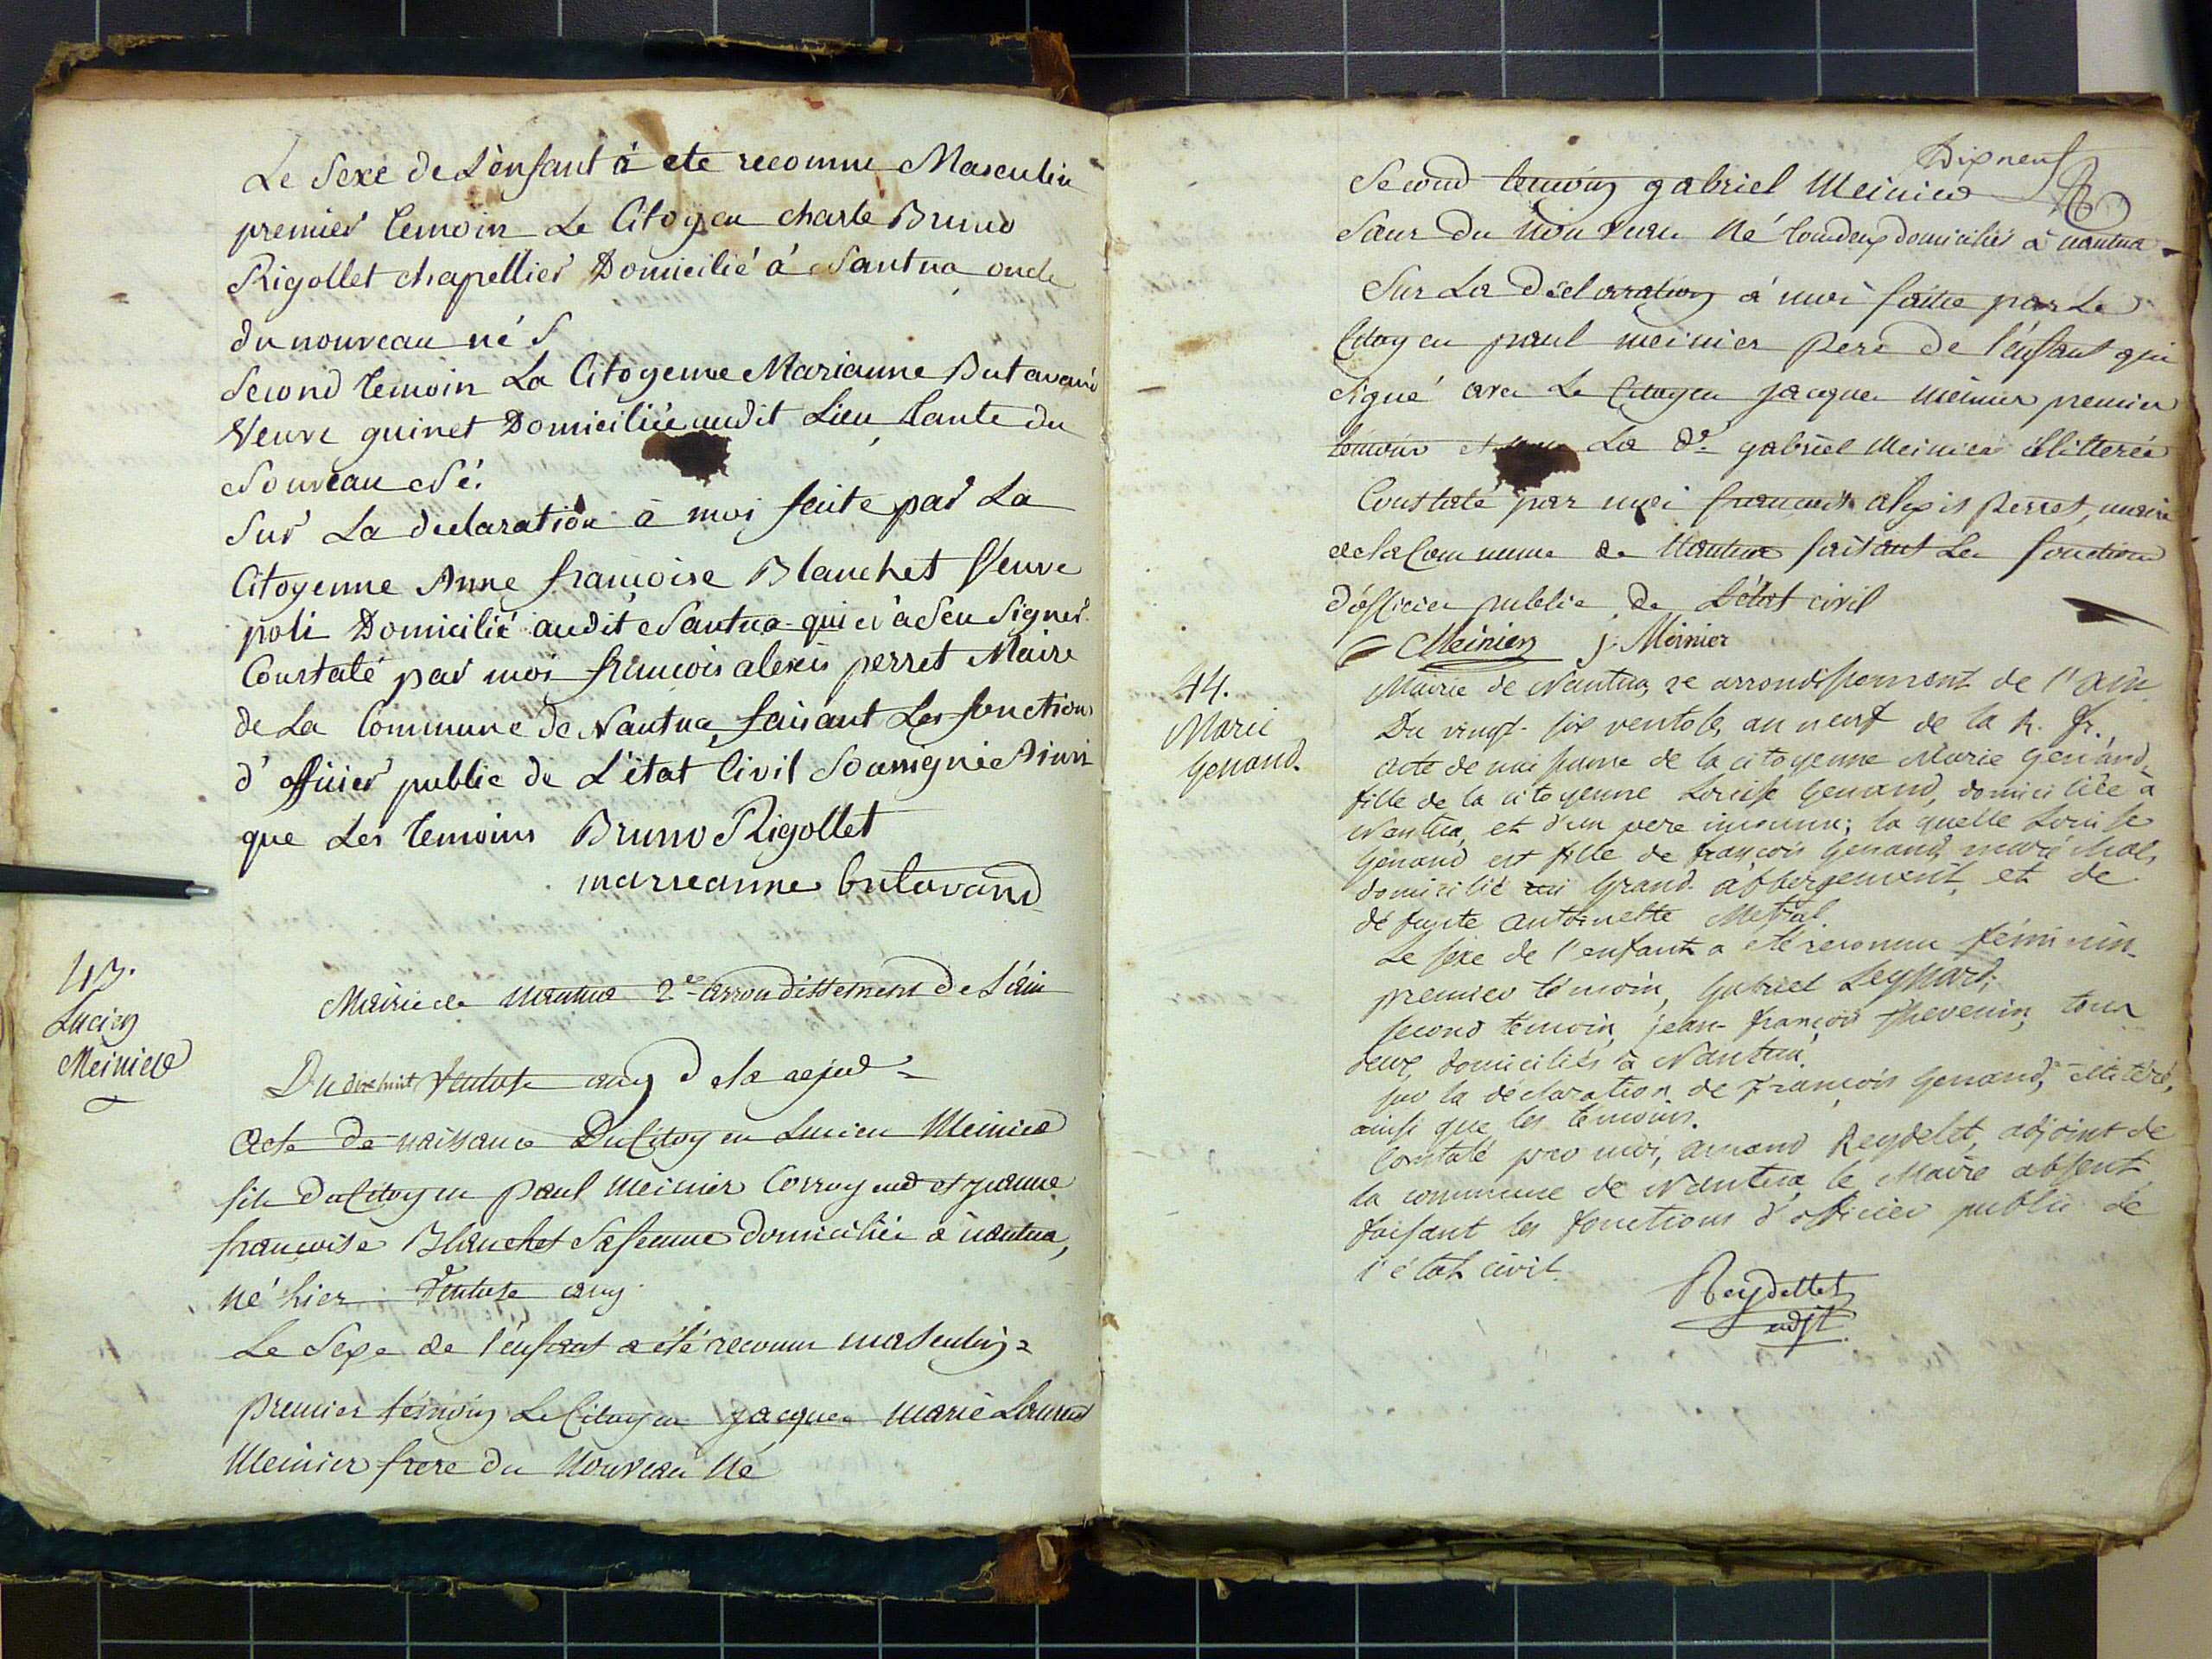 Le Sexe de L'enfant à ete reconnu Masculin
premier temoin Le Citoyen charle Bruno
Rigollet chapellier Domicilié à Nantua oncle
du nouveau né
Second temoin La Citoyenne Marianne Butavand
Veuve guinet Domiciliée audit Lieu, tante du
Nouveau Né.
Sur La declaration à moi faite par La
Citoyenne Anne françoise Blanchet Veuve
poli Domicilié audit Nantua qui n'a Seu Signer
Constaté par moi francois alexis perret Maire
de La Commune de Nantua, faisant Les fonctions
d'officier public de L'état Civil Soussigné Ainsi
que Les temoins Bruno Rigollet
marieanne butavand
43.
Lucien
Meinier
Mairie de nantua 2e arrondissement de L'ain
Du dix huit Ventose an 9 de la repub
Acte de naissance Du Citoyen Lucien Meinier
fils du Citoyen paul Meinier Corroyeur et jeanne
françoise Blanchet Sa femme domiciliée à nantua,
né hier Ventose an 9
Le Sexe de l'enfant a été reconnu masculin
premier témoin Le Citoyen jacques marie Laurend
Meinier frere du Nouveau Né
Dix neuf
Second temoin gabriel Meinier
Sœur du Nouveau Né tous deux domiciliés à nantua
Sur La declaration à moi faite par Le
Citoyen paul meinier Pere de l'enfant qui
signé avec Le Citoyen jacques meinier premier
témoin et La de gabriel Meinier illitterée
Constaté par moi francois alexis Perret, maire
de la Commune de Nantua faisant Les fonctions
d'officier public de L'état civil
Meinier j. Meinier
44.
Marie
Genand.
Mairie de Nantua, 2e arrondissement de l'ain
Du vingt-six ventose, an neuf de la R. fr.,
acte de naissance de la citoyenne Marie Genand,
fille de la citoyenne Louise Genand, domiciliée à
Nantua, et d'un pere inconnu; la quelle Louise
Genand est fille de françois Genand, maréchal,
domicilié au Grand-abbergement, et de
défunte antoinette Metral.
Le sexe de l'enfant a été reconnu féminin
premier témoin, Gabriel Seyssard;
second témoin, jean-françois thevenin, tous
deux domiciliés à Nantua.
sur la déclaration de françois Genand, illitéré,
ainsi que les témoins.
Constaté par moi, amand Reydelet, adjoint de
la commune de Nantua, le Maire absent,
faisant les fonctions d'officier public de
l'état civil.
Reydellet
adjt